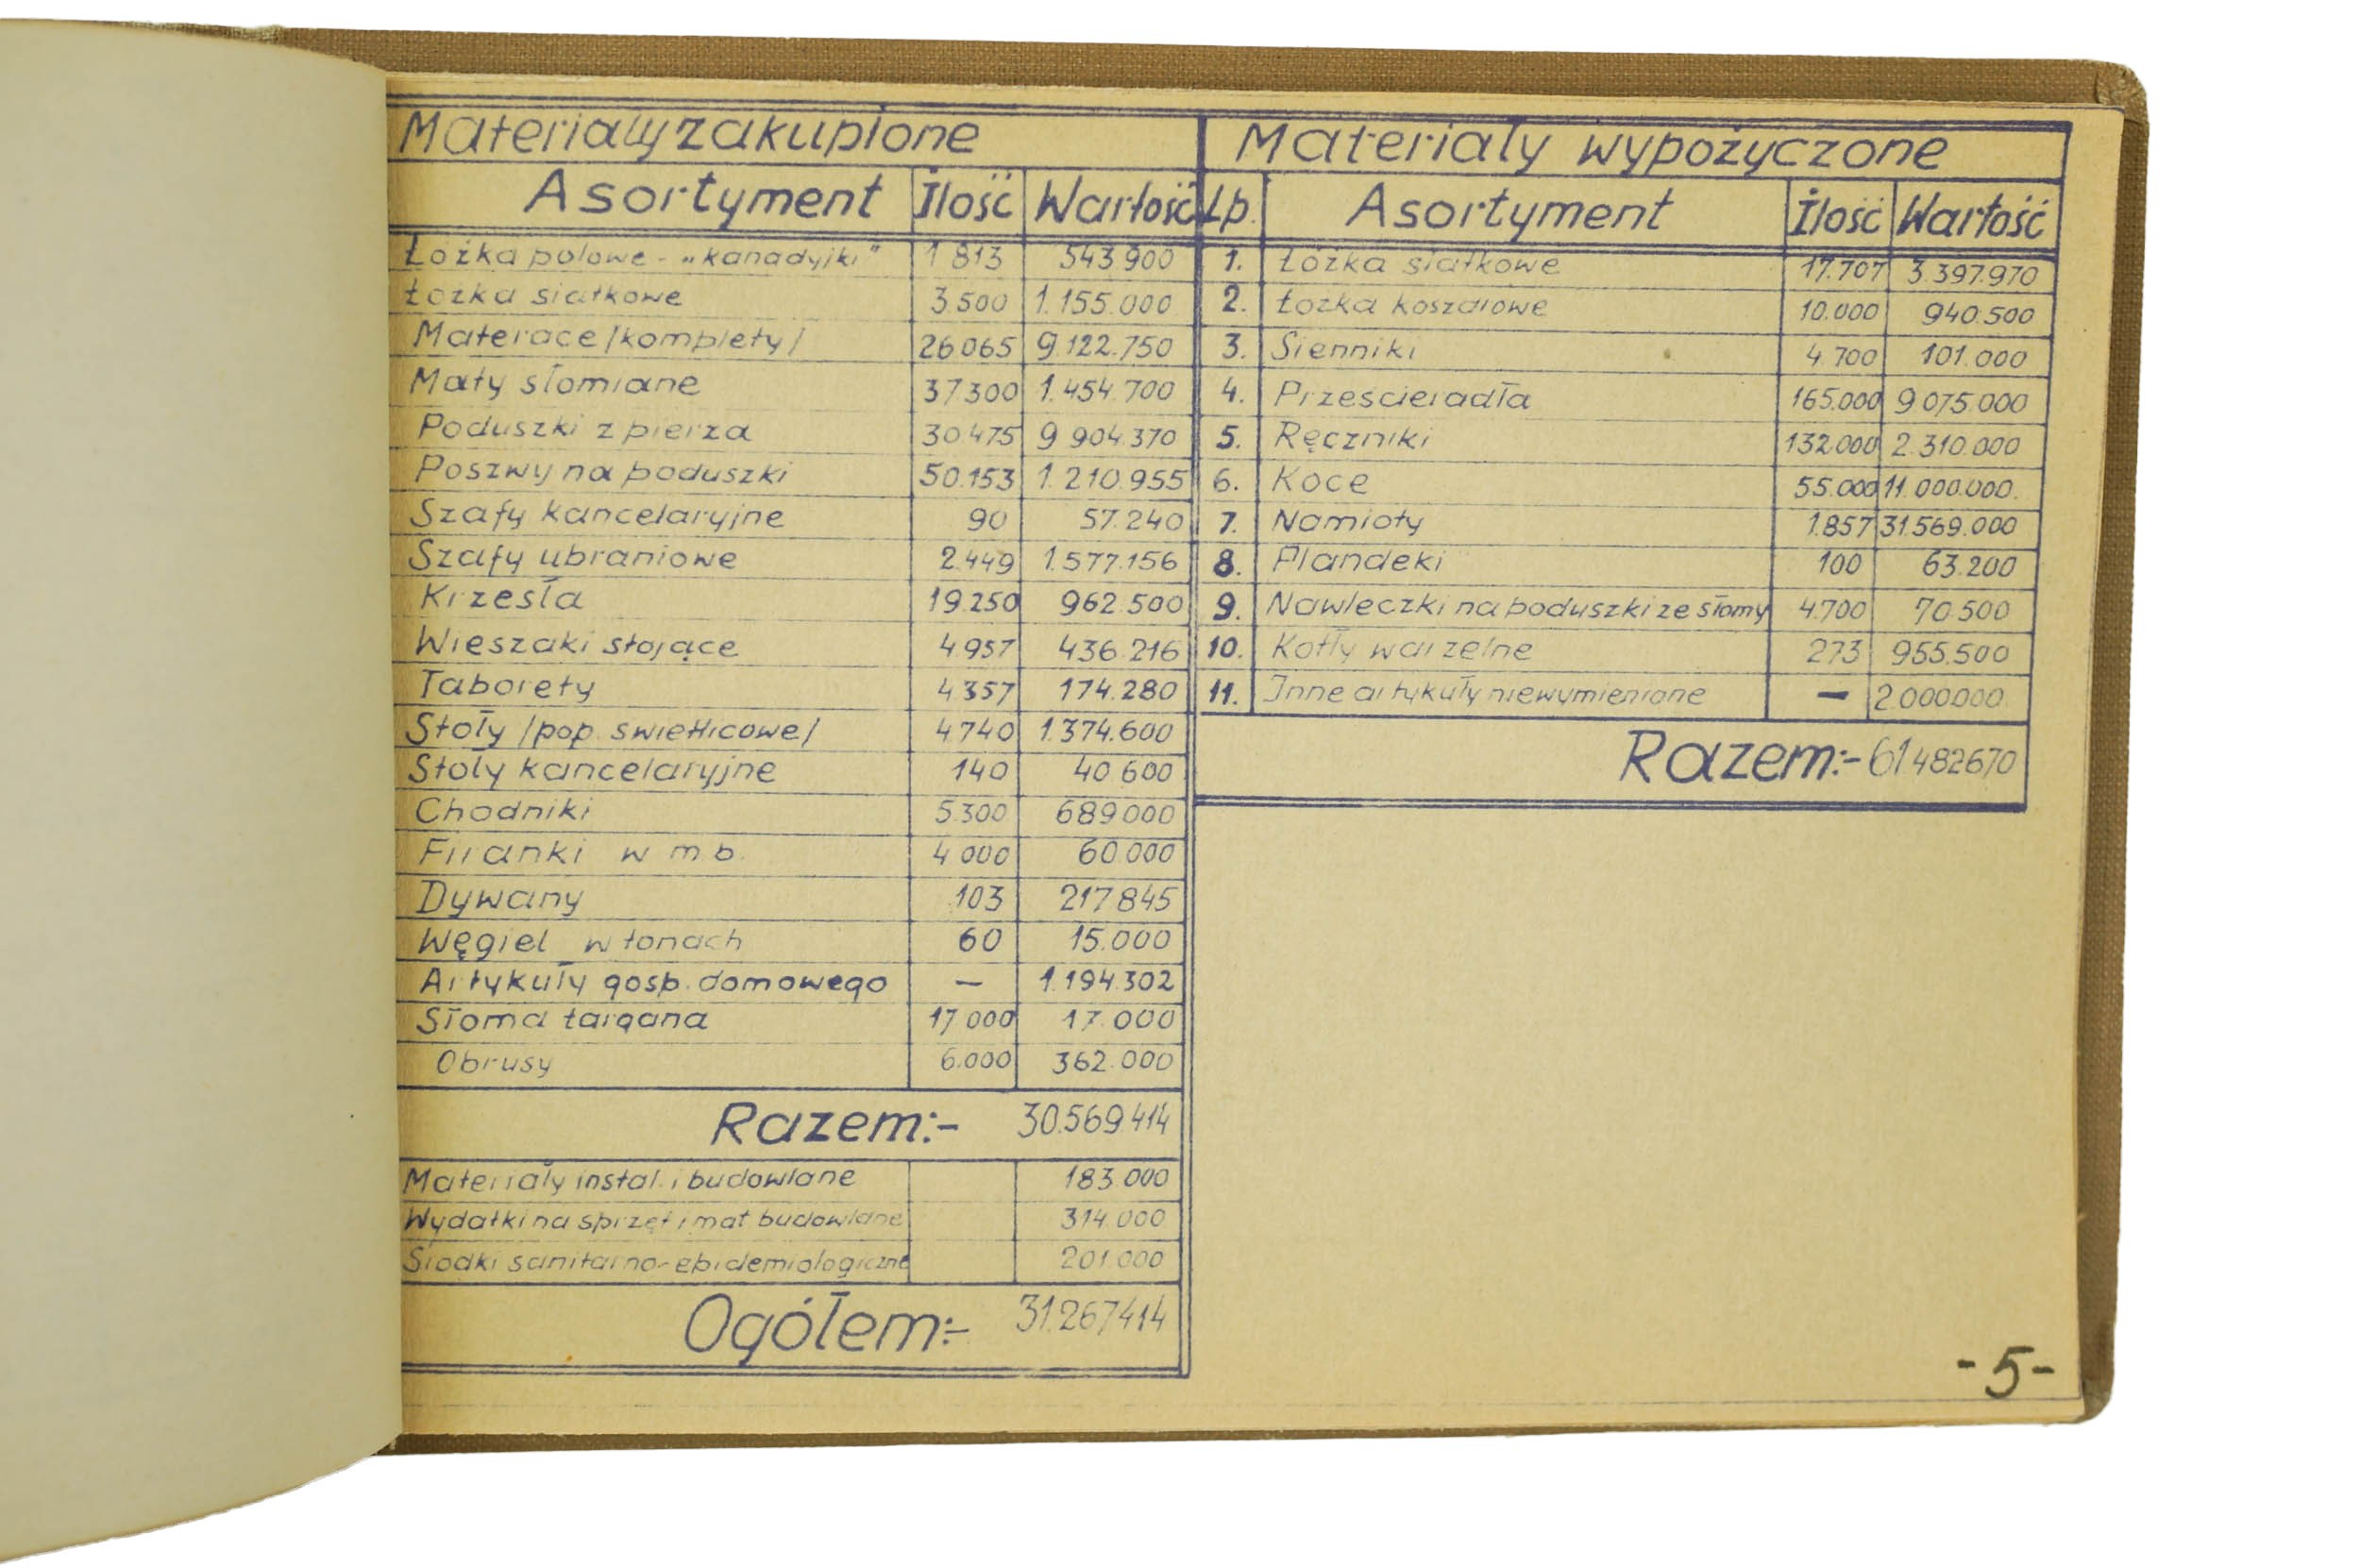 Materiały zakupione
Asortyment Ilość Wartość
Łóżka polowe - „kanadyjki" 1 813 543 900
Łóżka siatkowe 3.500 1.155.000
Materace /komplety/ 26 065 9.122.750
Maty słomiane 37 300 1.454.700
Poduszki z pierza 30 475 9 904.370
Poszwy na poduszki 50.153 1.210.955
Szafy kancelaryjne 90 57.240
Szafy ubraniowe 2.449 1.577.156
Krzesła 19.250 962.500
Wieszaki stojące 4 957 436.216
Taborety 4 357 174.280
Stoły /pop. świetlicowe/ 4 740 1.374.600
Stoły kancelaryjne 140 40 600
Chodniki 5.300 689 000
Firanki w m b. 4 000 60.000
Dywany 103 217 845
Węgiel w tonach 60 15.000
Artykuły gosp. domowego — 1.194.302
Słoma targana 17 000 17.000
Obrusy 6.000 362.000
Razem:- 30.569.414
Materiały instal. i budowlane 183.000
Wydatki na sprzęt i mat budowlane 314.000
Środki sanitarno-epidemiologiczne 201.000
Ogółem:- 31.267414
Materiały wypożyczone
Lp. Asortyment Ilość Wartość
1. Łóżka siatkowe 17.707 3.397.970
2. Łóżka koszarowe 10.000 940.500
3. Sienniki 4.700 101.000
4. Prześcieradła 165.000 9 075.000
5. Ręczniki 132.000 2.310.000
6. Koce 55.000 11.000.000.
7. Namioty 1.857 31.569.000
8. Plandeki 100 63.200
9. Nawleczki na poduszki ze słomy 4.700 70.500
10. Kotły warzelne 273 955.500
11. Inne artykuły niewymienione — 2.000.000
Razem:- 61482670
-5-